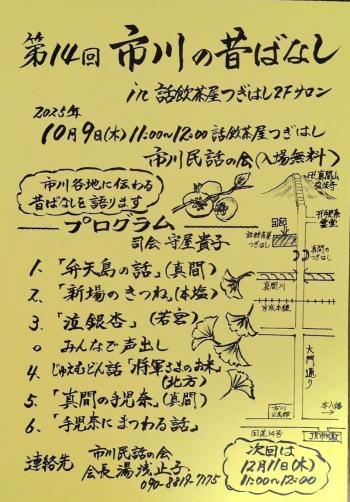 第14回 市川の昔ばなし
in 話飲茶屋つぎはし2Fサロン
2025年
10月9日(木) 11:00~12:00 話飲茶屋つぎはし
市川民話の会(入場無料)
市川各地に伝わる
昔ばなしを語ります
プログラム
司会 守屋貴子
1.「弁天島の話」(真間)
2.「新場のきつね」(本塩)
3.「泣銀杏」(若宮)
○ みんなで声出し
4. じゅえむどん話「将軍さまのお米」
(北方)
5.「真間の手児奈」(真間)
6.「手児奈にまつわる話」
連絡先 市川民話の会
会長 湯浅止子
090-8819-7175
卍真間山
弘法寺
手児奈
霊堂
入口
話飲茶屋
つぎはし
真間の
つぎはし
真間川
京成本線
大門通り
市川
公民館
本八幡
国道14号
JR市川駅
次回は
12月11日(木)
11:00~12:00